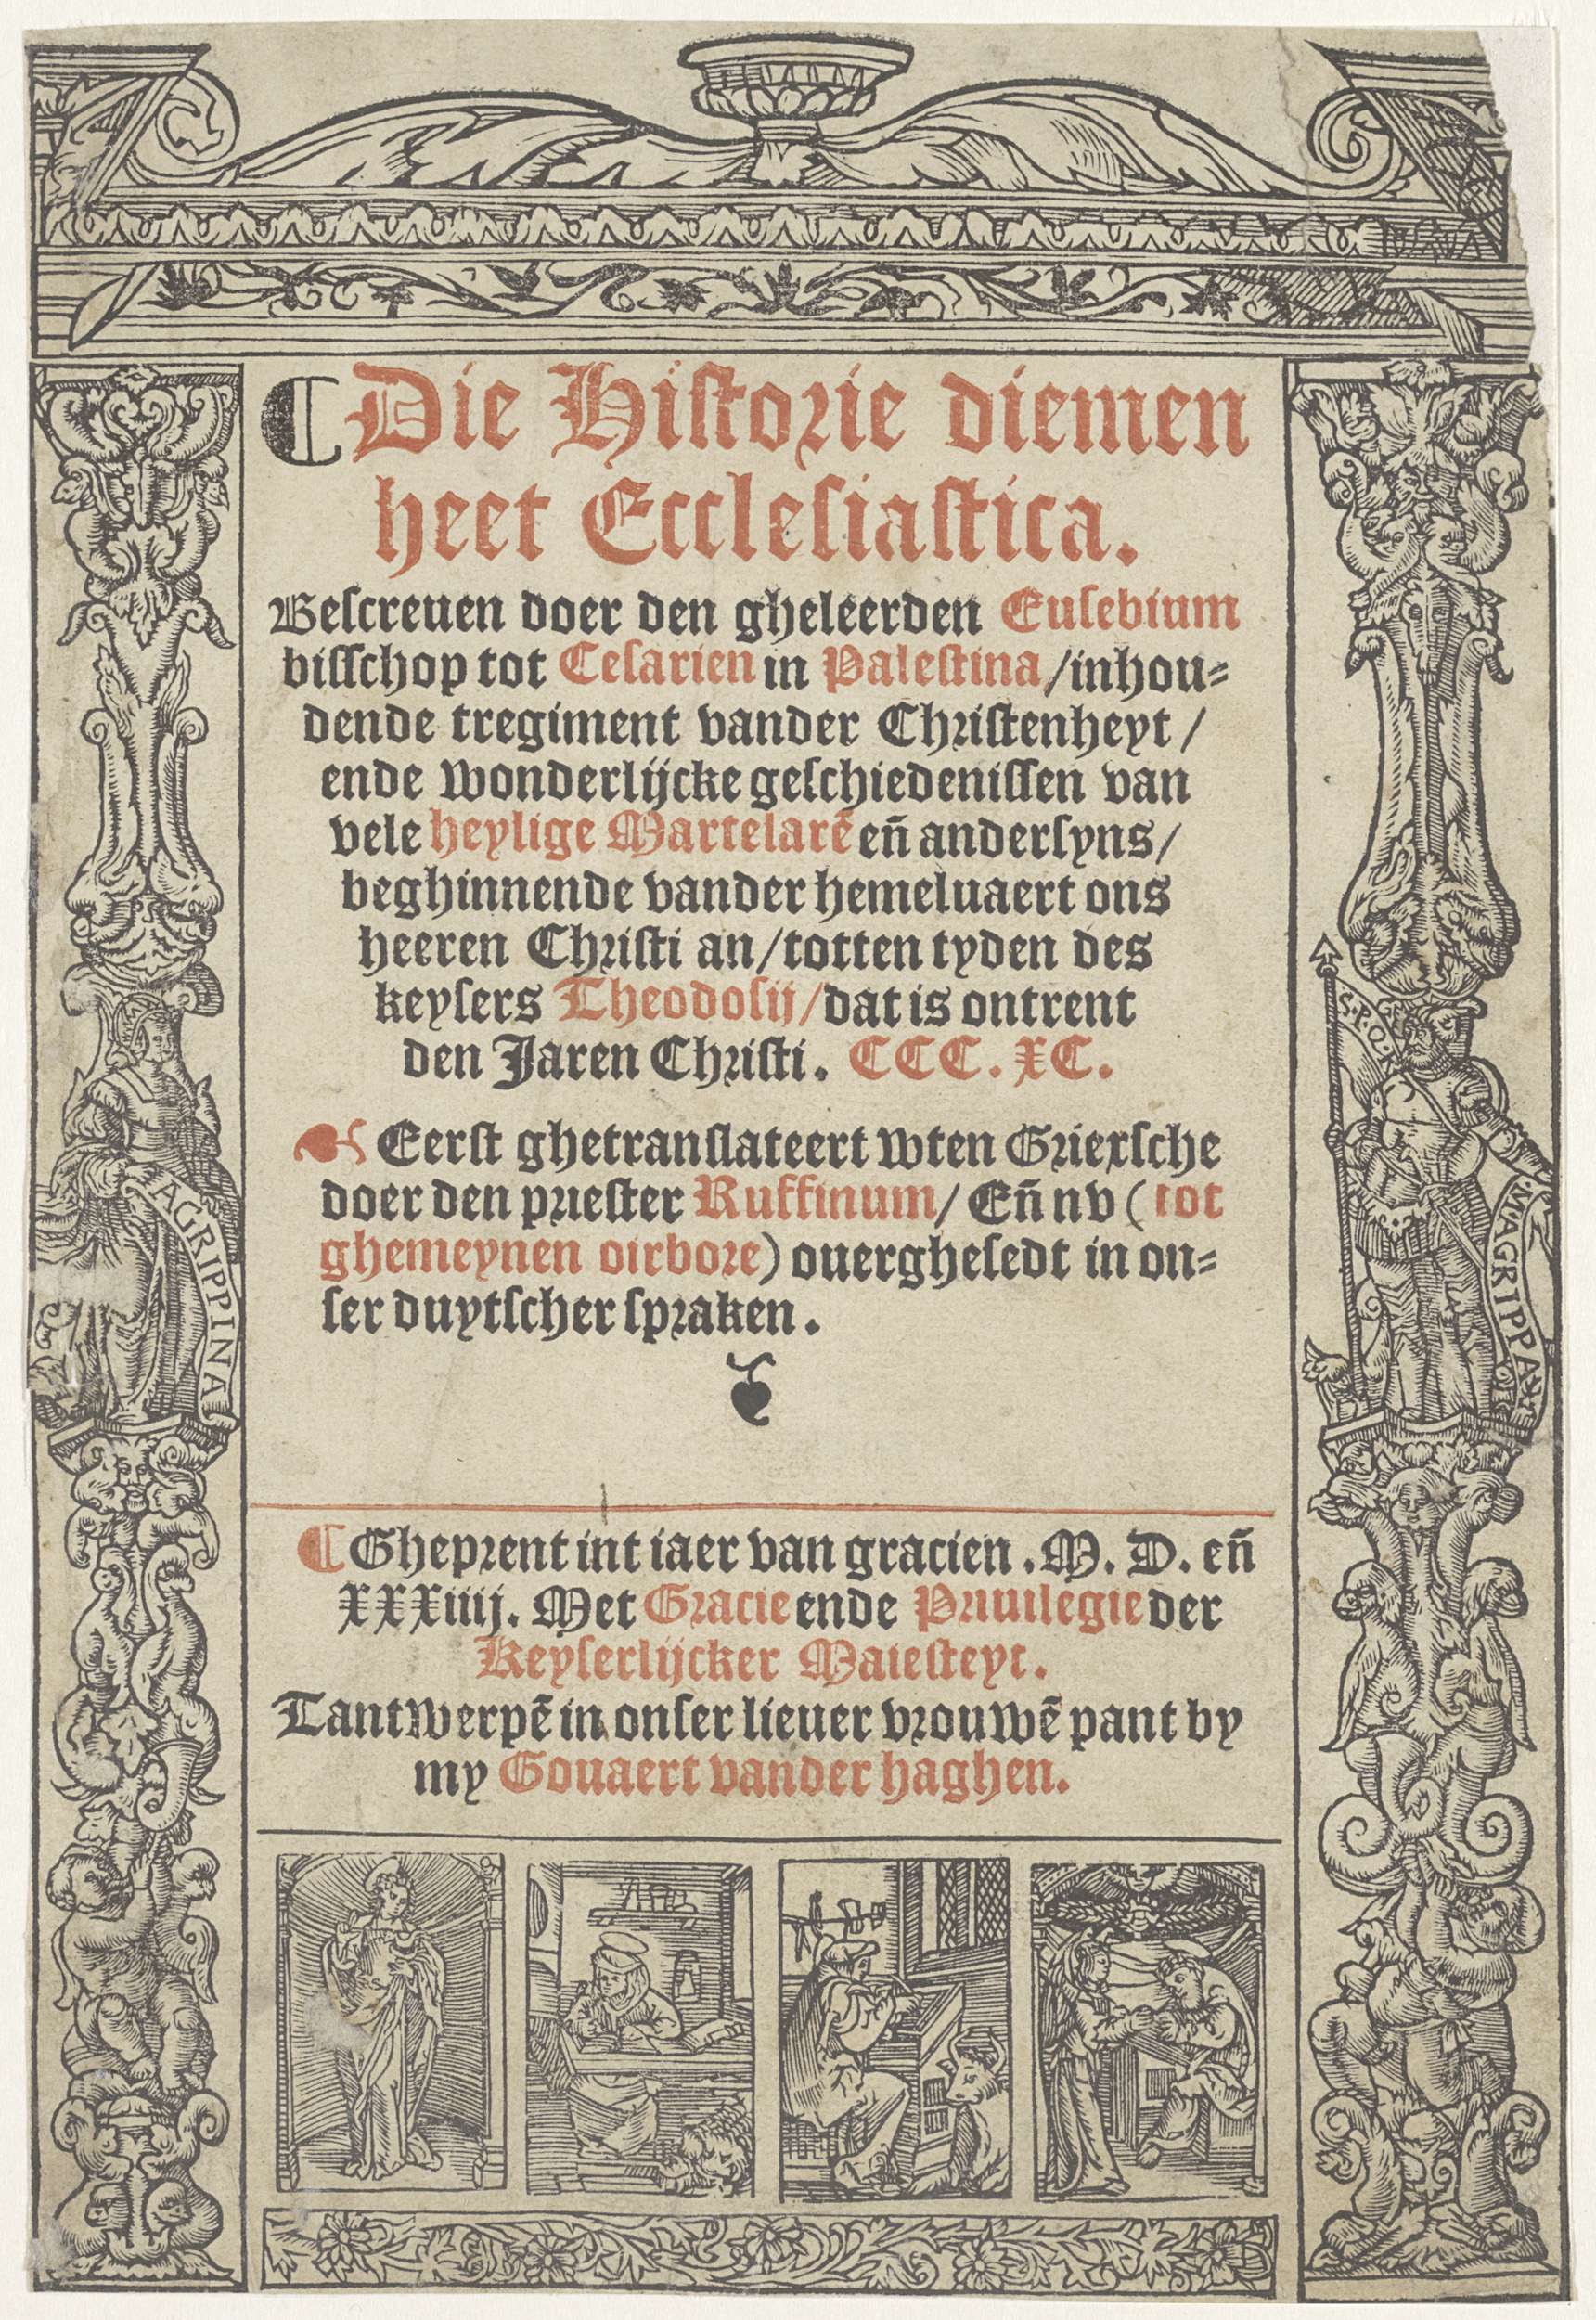 Die Historie diemen
heet Ecclesiastica.
Bescreuen doer den gheleerden Eusebium
bisschop tot Cesarien in Palestina/inhou-
dende tregiment vander Christenheyt/
ende wonderlijcke geschiedenissen van
vele heylige Martelarē eñ andersyns/
beghinnende vander hemeluaert ons
heeren Christi an/totten tyden des
keysers Theodosij/dat is ontrent
den Jaren Christi. CCC. XC.
Eerst ghetranslateert wten Griexsche
doer den priester Ruffinum/ Eñ nv (tot
ghemeynen oirbore) ouerghesedt in on-
ser duytscher spraken.
AGRIPPINA
S.P.Q.
M.AGRIPPA
Gheprent int iaer van gracien. M. D. eñ
XXXiiij. Met Gracie ende Priuilegie der
Keyserlijcker Maiesteyt.
Tantwerpē in onser lieuer vrouwē pant by
my Gouaert vander haghen.